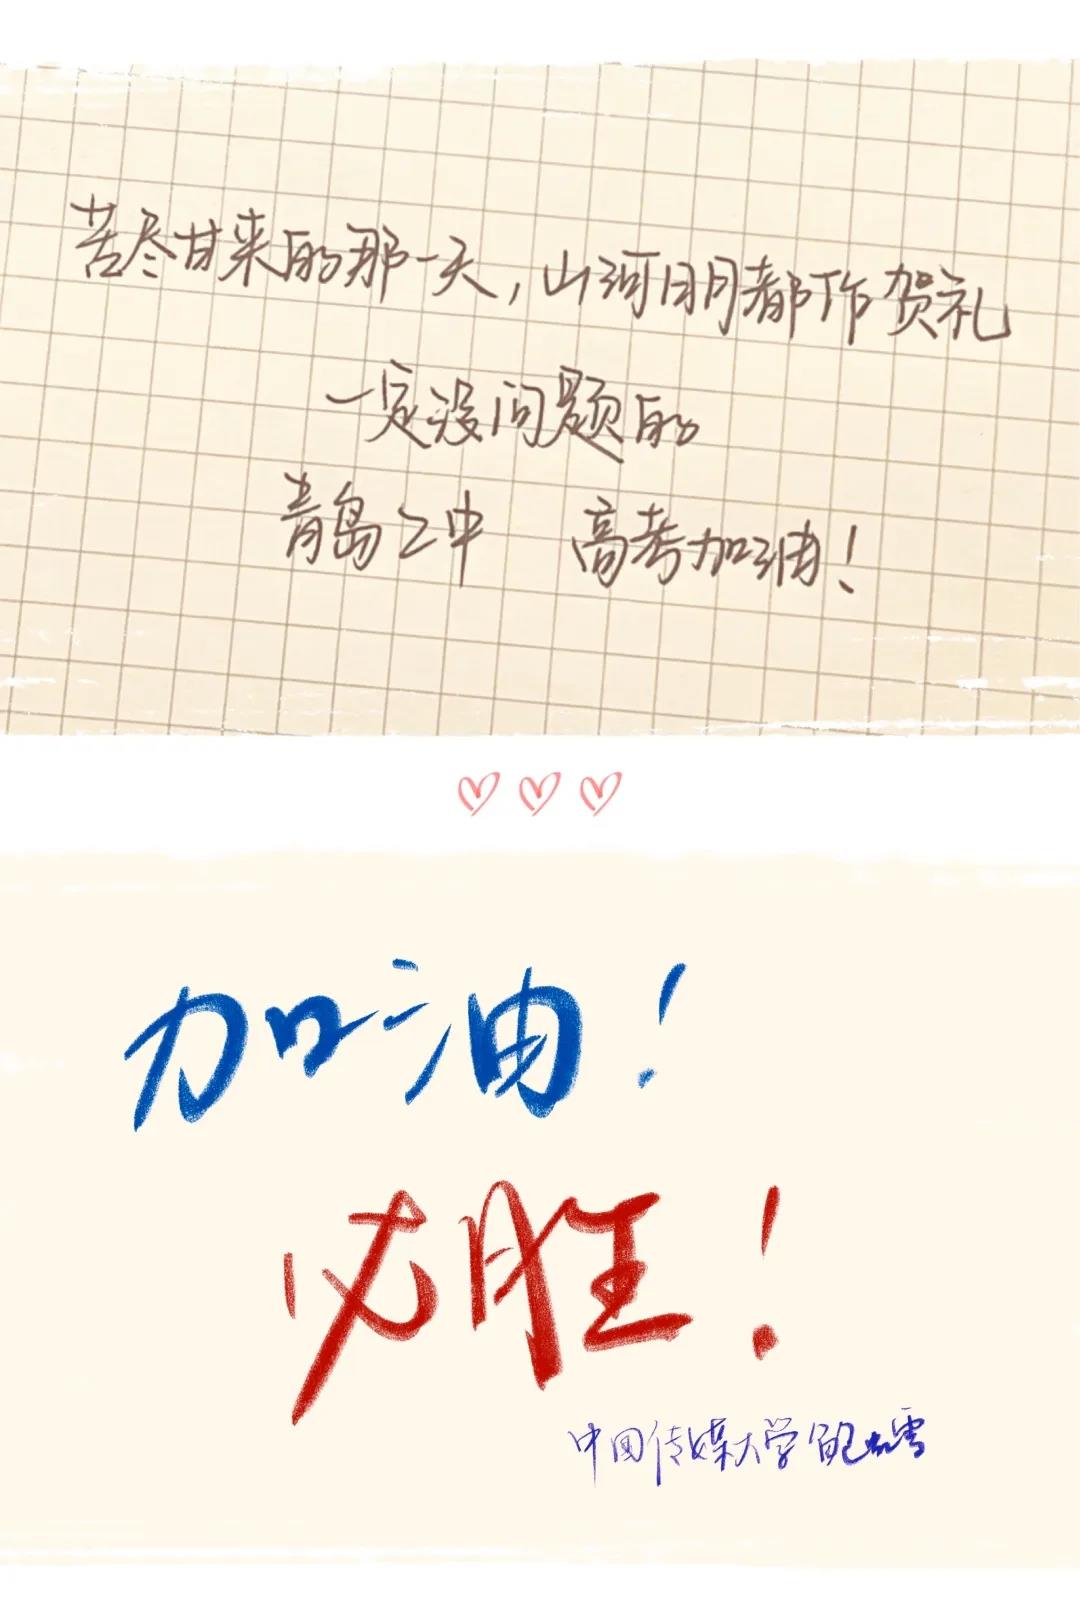 苦尽甘来的那一天，山河日月都作贺礼
一定没问题的
青岛二中 高考加油！
加油！
必胜！
中国传媒大学